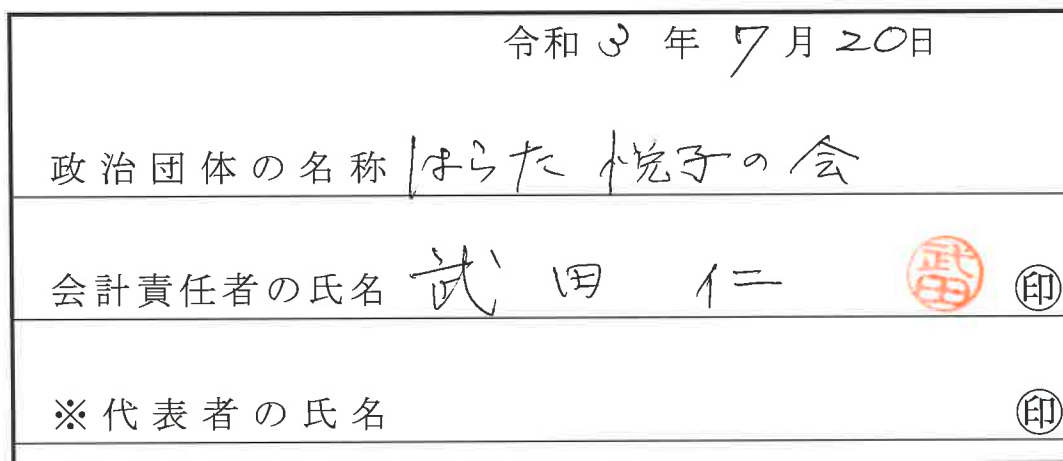 令和 3 年 7 月 20日
政治団体の名称 はらた 悦子の会
会計責任者の氏名 武田 仁 武田 ㊞
※代表者の氏名 ㊞